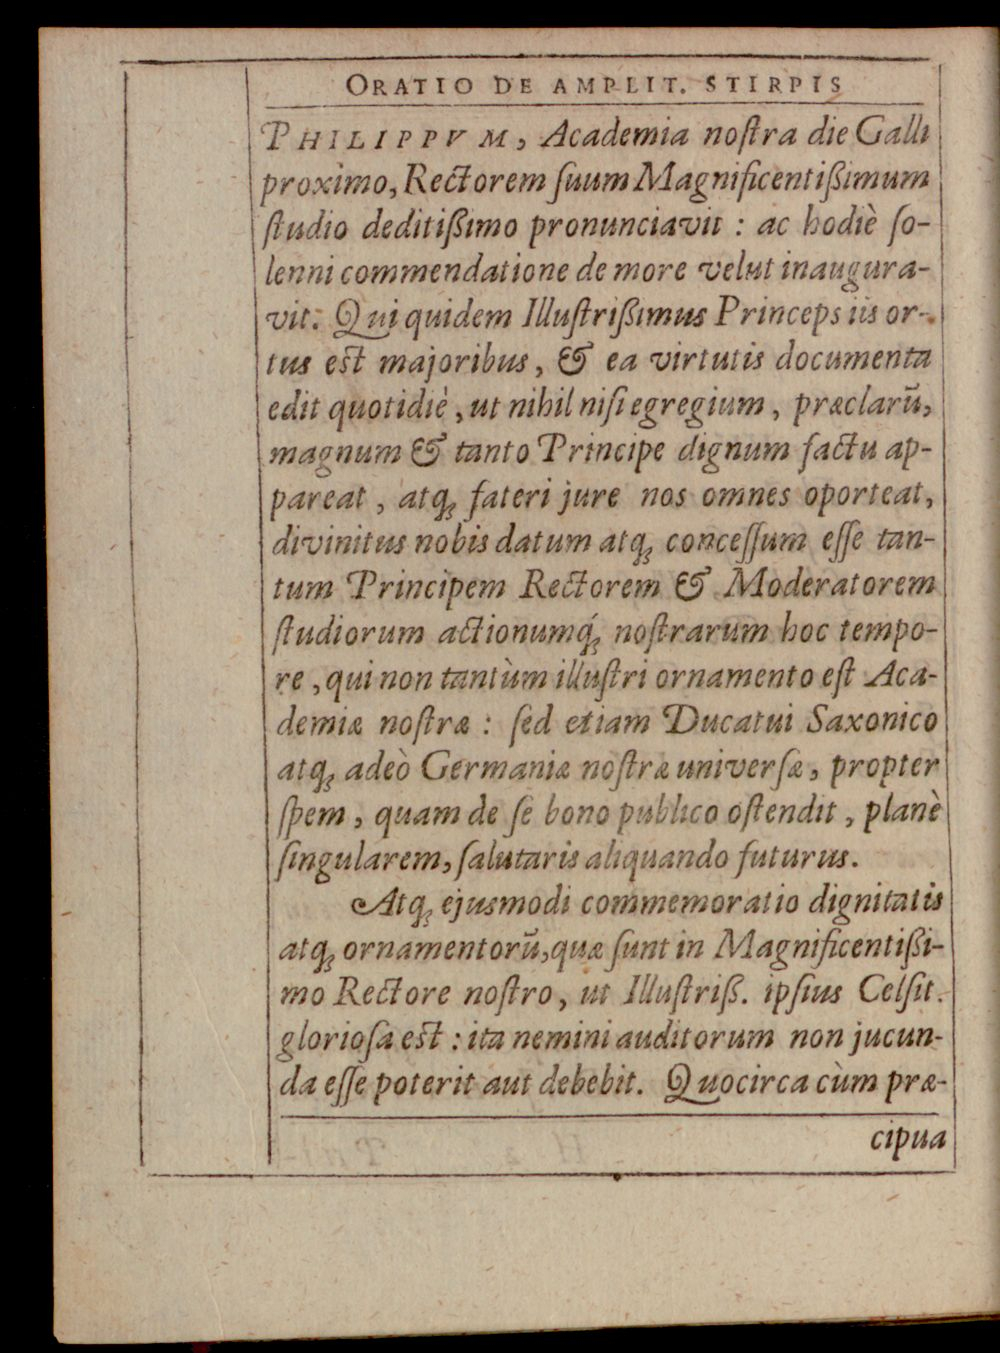 ORATIO DE AMPLIT. STIRPIS
PHILIPPVM, Academia noſtra die Galli
proximo, Rectorem ſuum Magnificentißimum
ſtudio deditißimo pronunciavit : ac hodiè ſo-
lenni commendatione de more velut inaugura-
vit. Qui quidem Illuſtrißimus Princeps iis or-
tus est majoribus, & ea virtutis documenta
edit quotidiè, ut nihil niſi egregium, præclarū,
magnum & tanto Principe dignum factu ap-
pareat, atq; fateri jure nos omnes oporteat,
divinitus nobis datum atq; conceſſum eſſe tan-
tum Principem Rectorem & Moderatorem
ſtudiorum actionumq́; noſtrarum hoc tempo-
re, qui non tantùm illuſtri ornamento eſt Aca-
demiæ noſtræ : ſed etiam Ducatui Saxonico
atq; adeò Germaniæ noſtræ univerſæ, propter
ſpem, quam de ſe bono publico oſtendit, planè
ſingularem, ſalutaris aliquando futurus.
Atq; ejusmodi commemoratio dignitatis
atq; ornamentorū, quæ ſunt in Magnificentißi-
mo Rectore noſtro, ut Illuſtriß. ipſius Celſit.
glorioſa est : ita nemini auditorum non jucun-
da eſſe poterit aut debebit. Quocirca cùm præ-
cipua